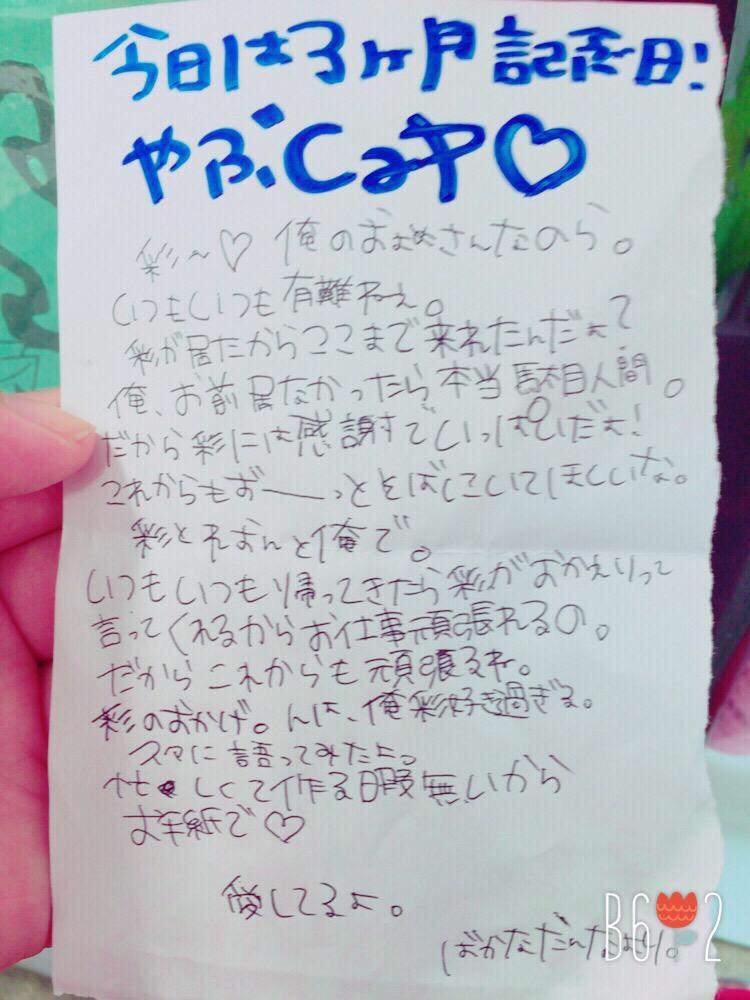 今日は3ヶ月記念日!
やぶCaや♡
彩〜♡ 俺のおよめさんなのら。
いつもいつも有難ねぇ。
彩が居たからここまで来れたんだよ?
俺、お前居なかったら本当駄目人間。
だから彩には感謝でいっぱいだよ!
これからもずーーっとそばにいてほしいな。
彩とれおんと俺で。
いつもいつも帰ってきたら彩がおかえりって
言ってくれるからお仕事頑張れるの。
だからこれからも頑張るね。
彩のおかげ。んは、俺彩好き過ぎる。
スマに語ってみたよ。
忙しくて作る暇無いから
お手紙で♡
愛してるよ。
ばかなだんなより。
B6 2